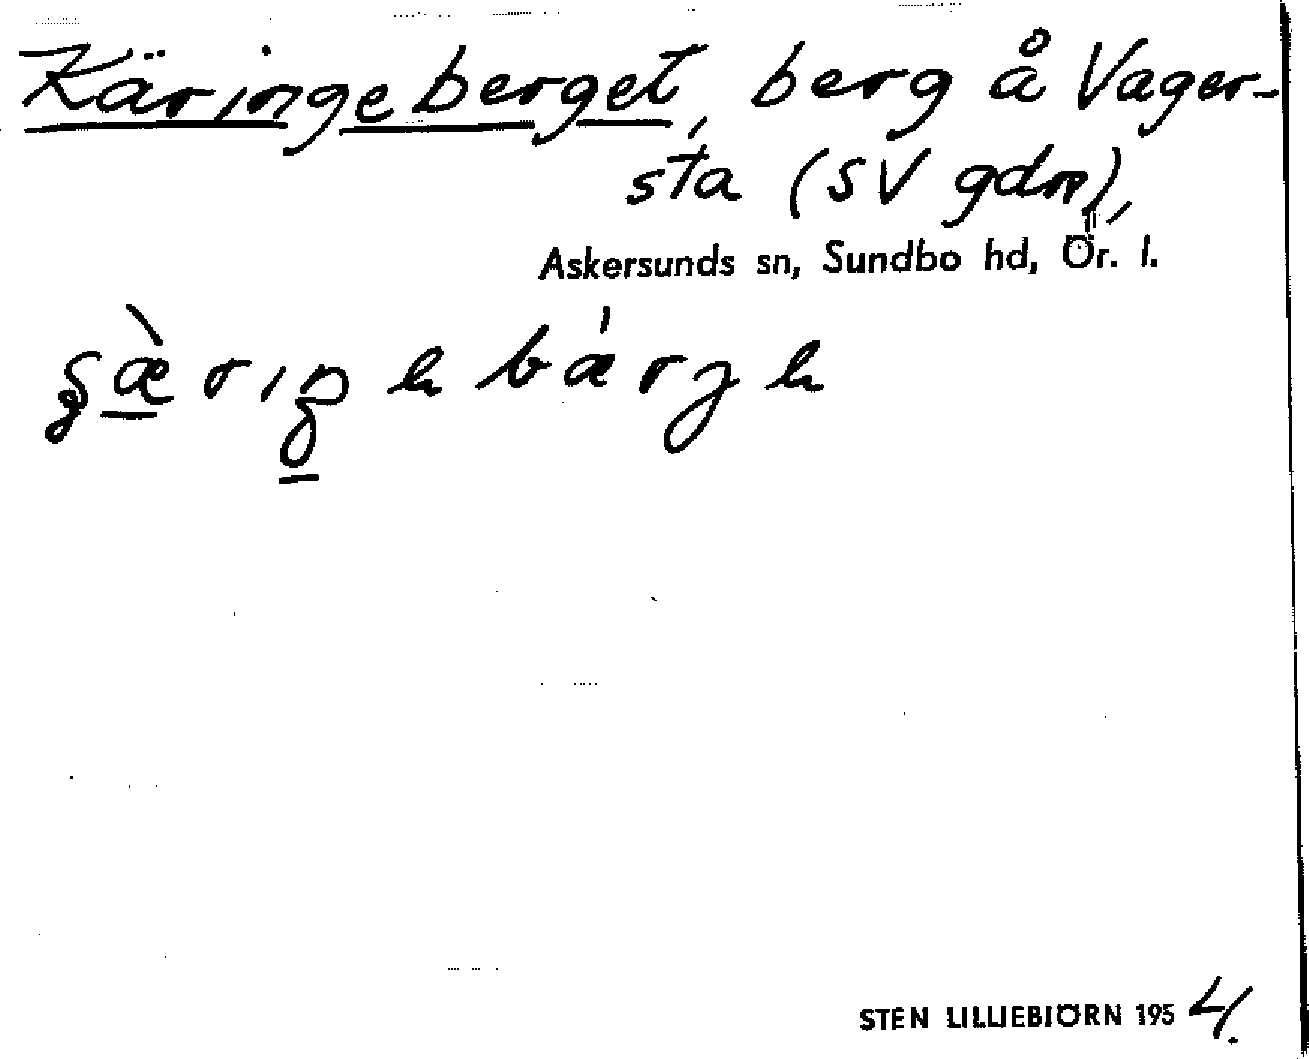 Käringeberget, berg å Vager-
sta (SV gdn),
Askersunds sn, Sundbo hd, Ör. l.
STEN LILLIEBIÖRN 1954.